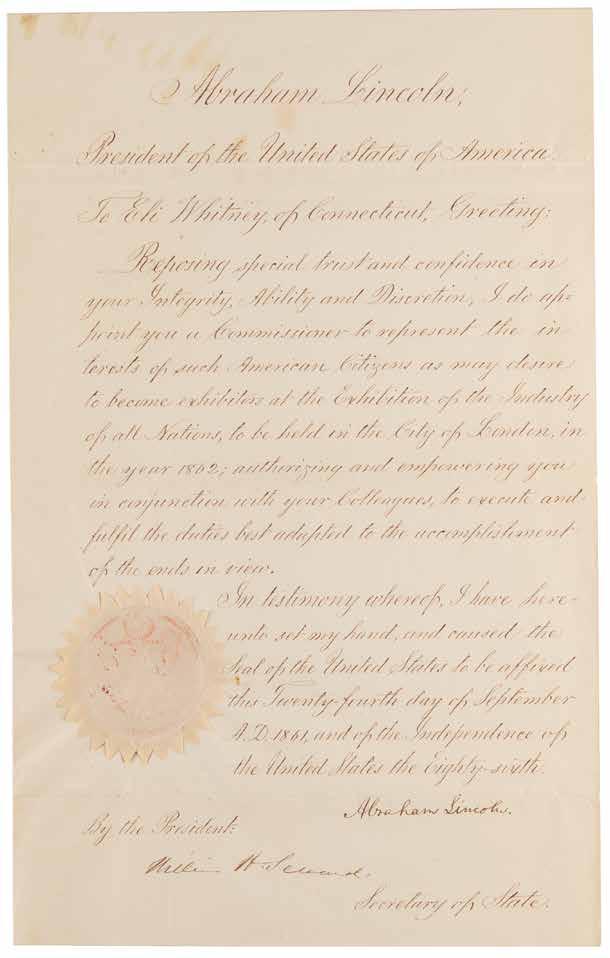 Abraham Lincoln;
President of the United States of America.
To Eli Whitney, of Connecticut, Greeting:
Reposing special trust and confidence in
your Integrity, Ability and Discretion, I do ap-
point you a Commissioner to represent the in-
terests of such American Citizens as may desire
to become exhibitors at the Exhibition of the Industry
of all Nations, to be held in the City of London, in
the year 1862; authorizing and empowering you
in conjunction with your Colleagues, to execute and
fulfil the duties best adapted to the accomplishment
of the ends in view.
In testimony whereof, I have here-
unto set my hand, and caused the
Seal of the United States to be affixed
this Twenty-fourth day of September
A.D. 1861, and of the Independence of
the United States the Eighty-sixth.
Abraham Lincoln.
By the President:
William H Seward.
Secretary of State.